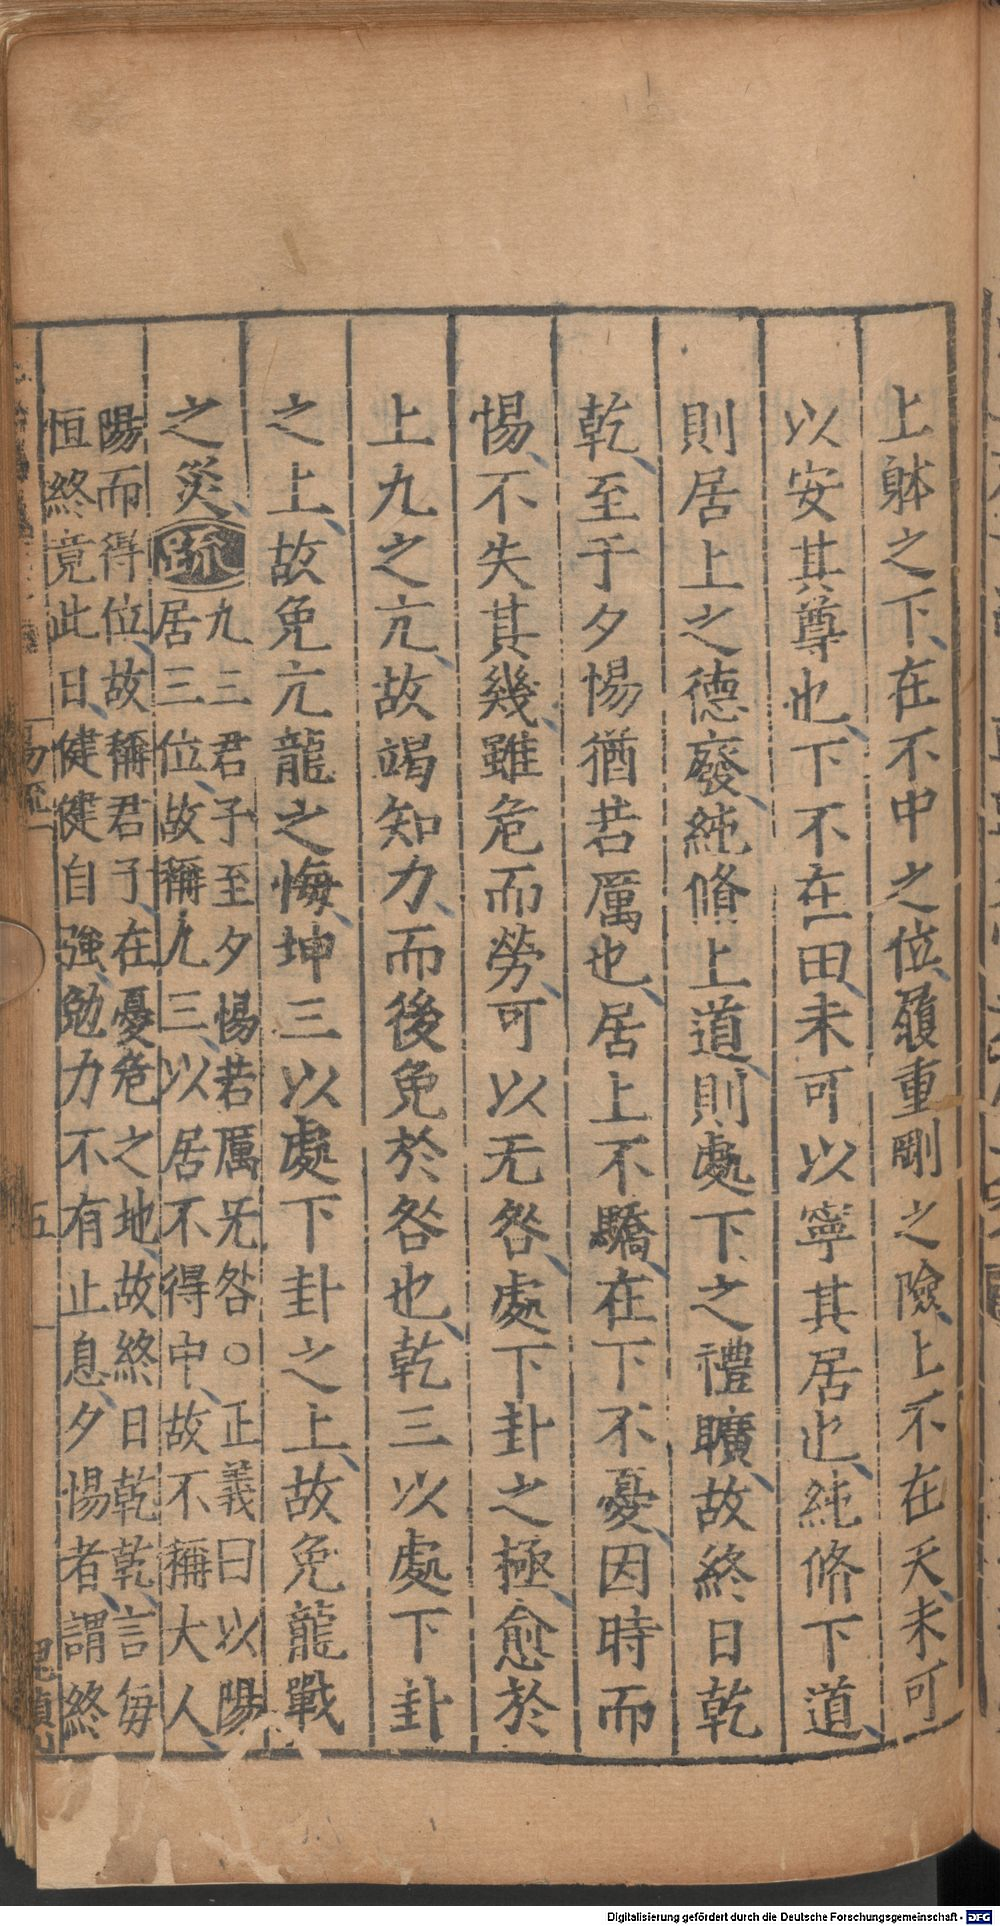 上躰之下在不中之位履重剛之險上不在天未可
以安其尊也下不在田未可以寧其居也純修下道
則居上之德廢純脩上道則處下之禮曠故終日乾
乾至于夕惕猶若厲也居上不驕在下不憂因時而
惕不失其幾雖危而勞可以无咎處下卦之極愈於
上九之亢故竭知力而後免於咎也乾三以處下卦
之上故免亢龍之悔坤三以處下卦之上故免龍戰
之災疏九三君子至夕惕若厲无咎○正義曰以陽
居三位故稱九三以居不得中故不稱大人
陽而得位故稱君子在憂危之地故終日乾乾言每
恒終竟此日健健自強勉力不有止息夕惕者謂終
易疏
五
Digitalisierung gefördert durch die Deutsche Forschungsgemeinschaft - DFG